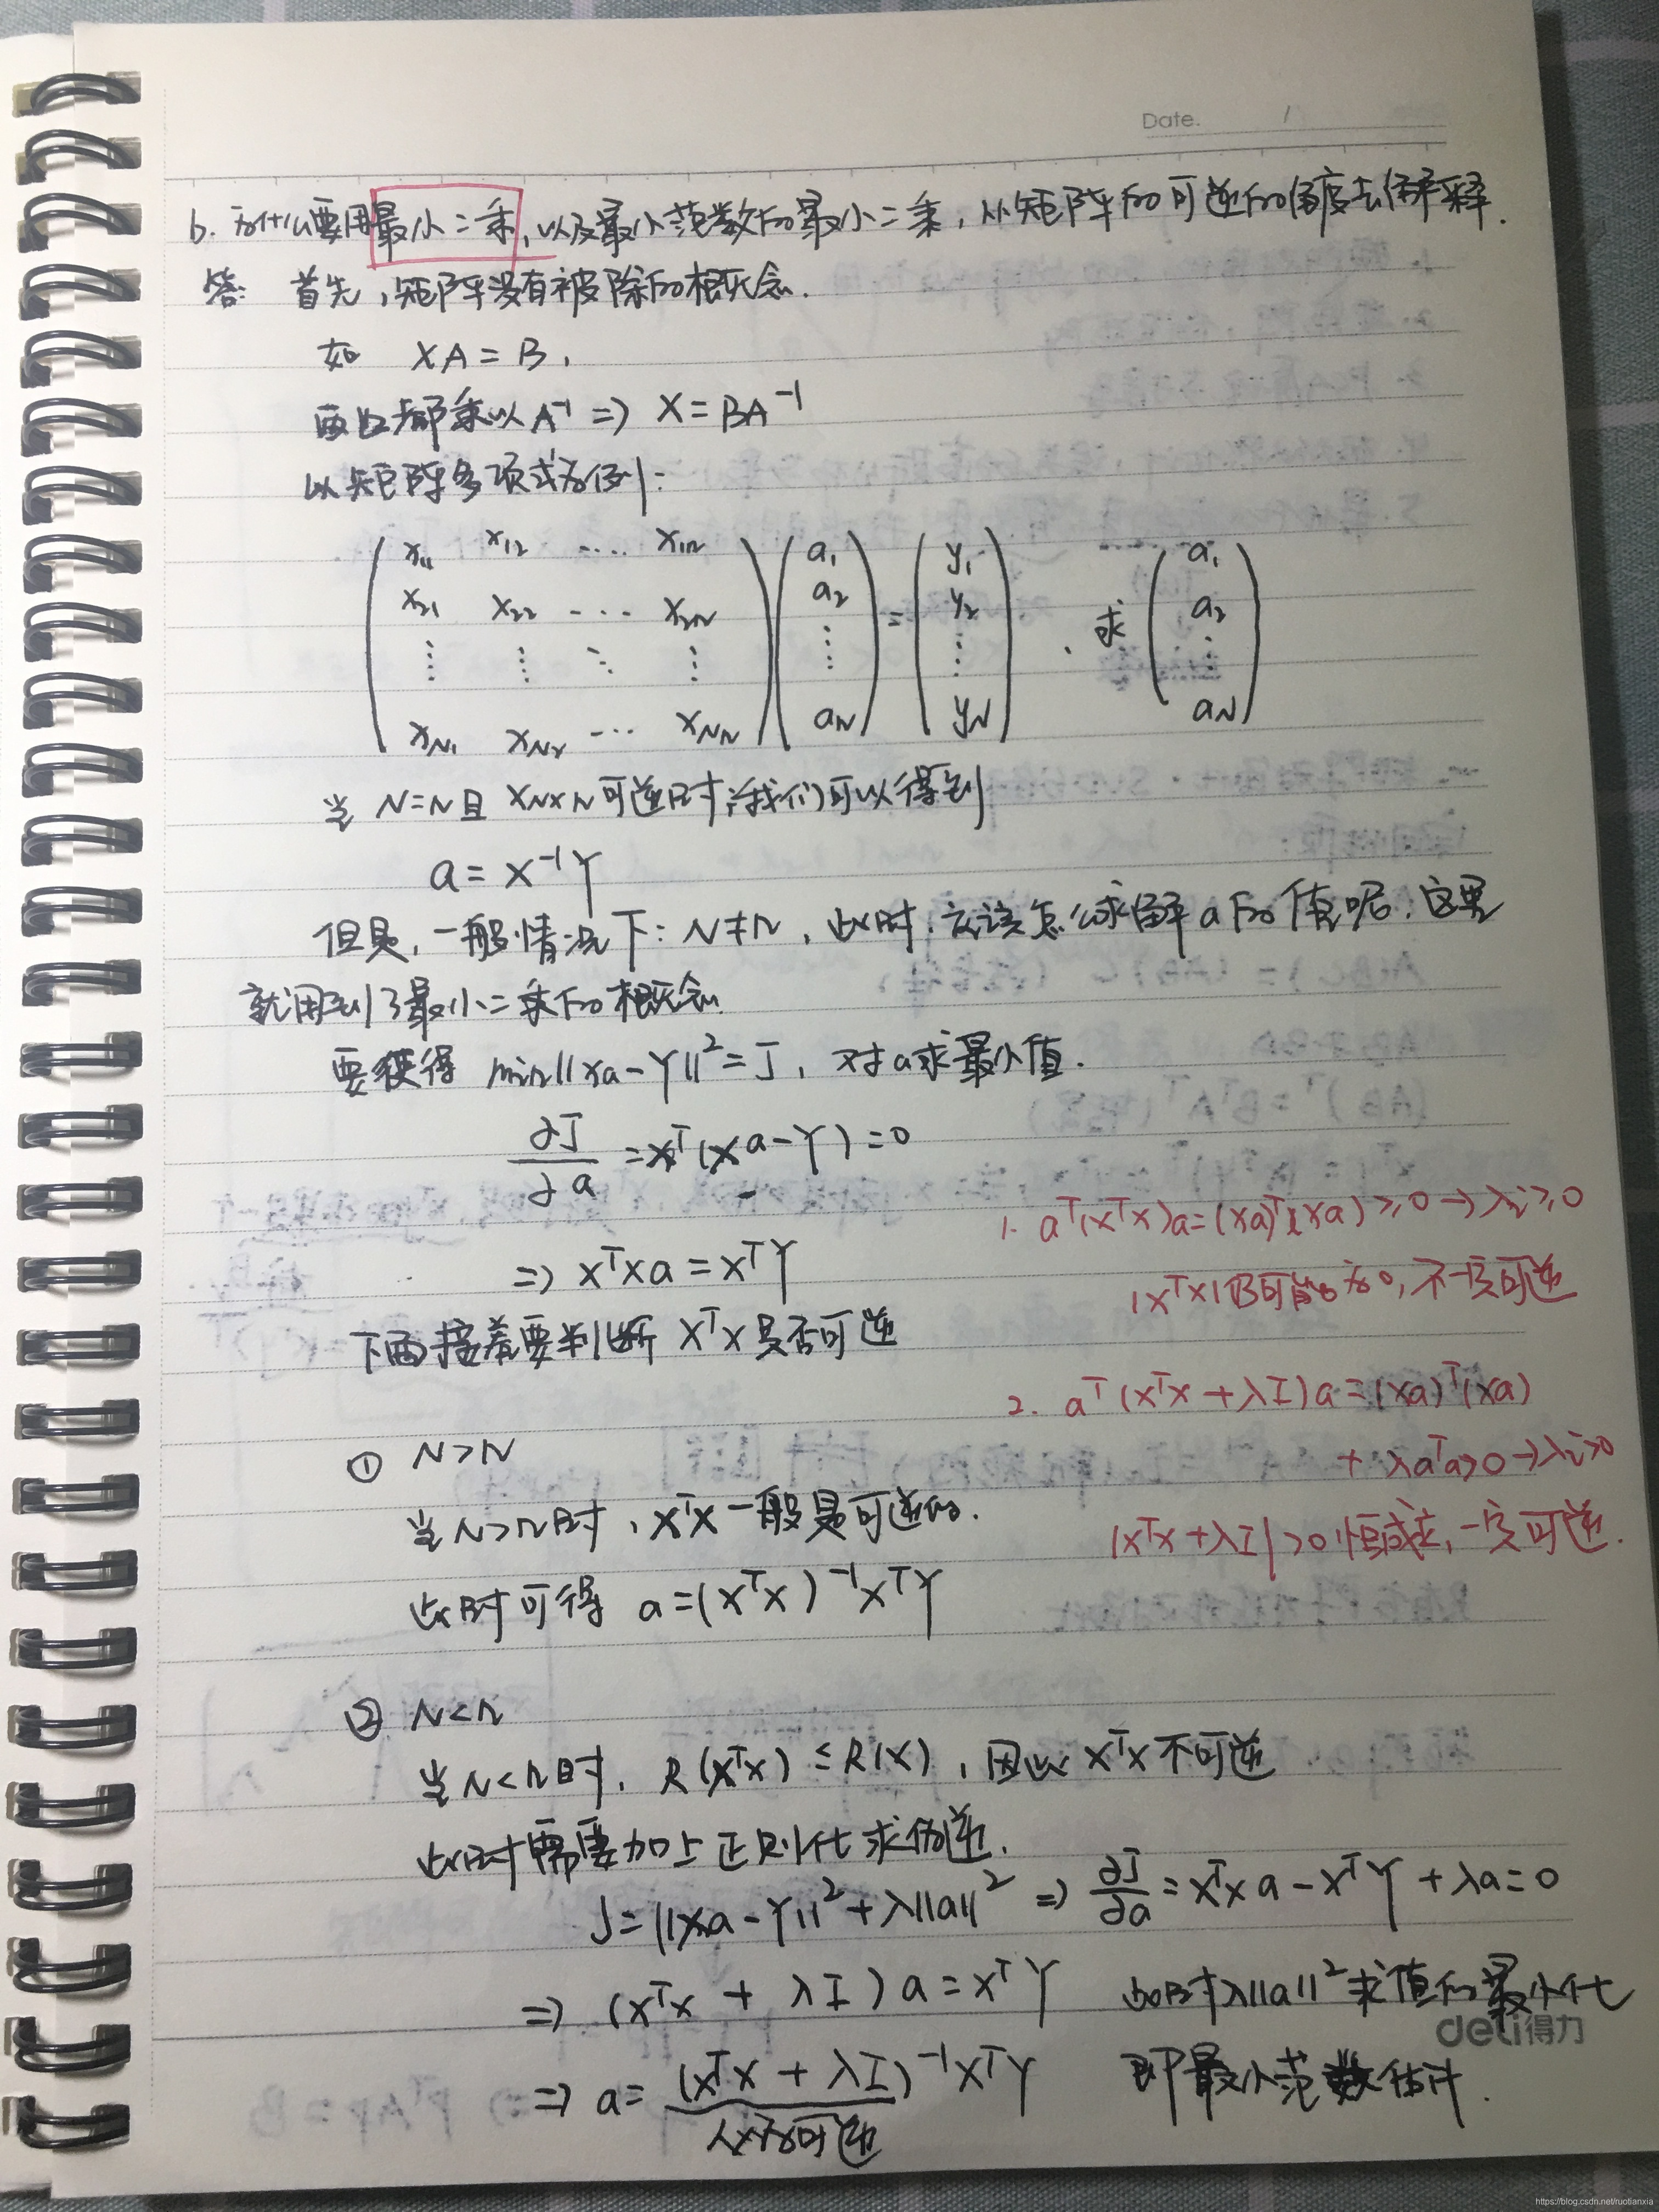 Date. /
6. 为什么要用最小二乘，以及最小范数的最小二乘，从矩阵的可逆的角度去解释.
答: 首先，矩阵没有被除的概念.
如 XA = B,
两边都乘以 A⁻¹ => X = BA⁻¹
以矩阵多项式为例:
( x₁₁ x₁₂ .... x₁ₙ ) ( a₁ ) ( y₁ ) ( a₁ )
x₂₁ x₂₂ ---- x₂ₙ a₂ = y₂ . 求 a₂
⋮ ⋮ ⋱ ⋮ ⋮ ⋮ ⋮
x_N1 x_N2 --- x_Nn a_N y_N a_N
当 N=n 且 X_N×n 可逆时，我们可以得到
a = X⁻¹Y
但是，一般情况下: N≠n，此时，应该怎么求解 a 的值呢，这里
就用到了最小二乘的概念.
要获得 min||Xa-Y||² = J，对a求最小值.
∂J/∂a = Xᵀ(Xa-Y) = 0
=> XᵀXa = XᵀY
1. aᵀ(XᵀX)a = (Xa)ᵀ(Xa) ≥ 0 → λi ≥ 0
|XᵀX|有可能为0, 不一定可逆
下面接着要判断 XᵀX 是否可逆
2. aᵀ(XᵀX + λI)a = (Xa)ᵀ(Xa)
+ λaᵀa>0 → λi>0
|XᵀX + λI|>0 恒成立, 一定可逆.
① N>n
当 N>n 时，XᵀX 一般是可逆的.
此时可得 a=(XᵀX)⁻¹XᵀY
② N<n
当 N<n 时, R(XᵀX) ≤ R(X)，因此 XᵀX 不可逆
此时需要加上正则化求伪逆.
J = ||Xa-Y||² + λ||a||² => ∂J/∂a = XᵀXa - XᵀY + λa = 0
=> (XᵀX + λI)a = XᵀY 此时λ||a||²求值的最小化
=> a = (XᵀX + λI)⁻¹XᵀY 即最小范数估计.
可逆
deli得力
https://blog.csdn.net/ruotianxia